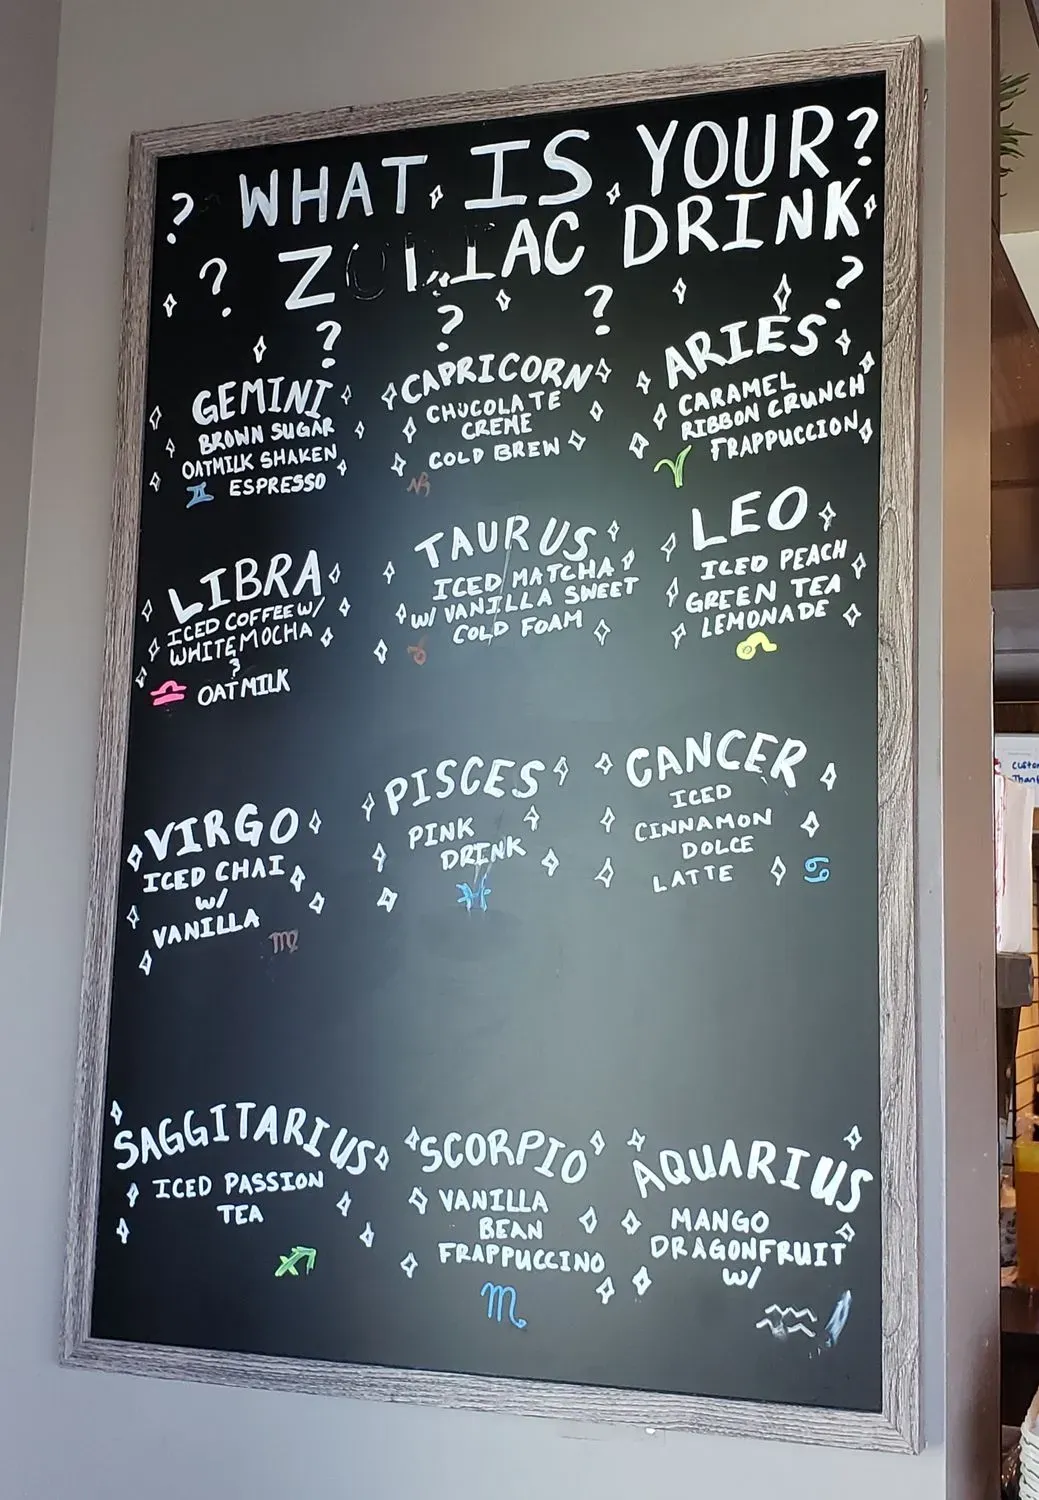 ? WHAT IS YOUR?
? Z IAC DRINK
? ? ? ?
GEMINI
BROWN SUGAR
OATMILK SHAKEN
ESPRESSO
CAPRICORN
CHOCOLATE
CREME
COLD BREW
ARIES
CARAMEL
RIBBON CRUNCH
FRAPPUCCION
LIBRA
ICED COFFEE W/
WHITE MOCHA
&
OATMILK
TAURUS
ICED MATCHA
W/ VANILLA SWEET
COLD FOAM
LEO
ICED PEACH
GREEN TEA
LEMONADE
VIRGO
ICED CHAI
W/
VANILLA
PISCES
PINK
DRINK
CANCER
ICED
CINNAMON
DOLCE
LATTE
SAGGITARIUS
ICED PASSION
TEA
SCORPIO
VANILLA
BEAN
FRAPPUCCINO
AQUARIUS
MANGO
DRAGONFRUIT
W/